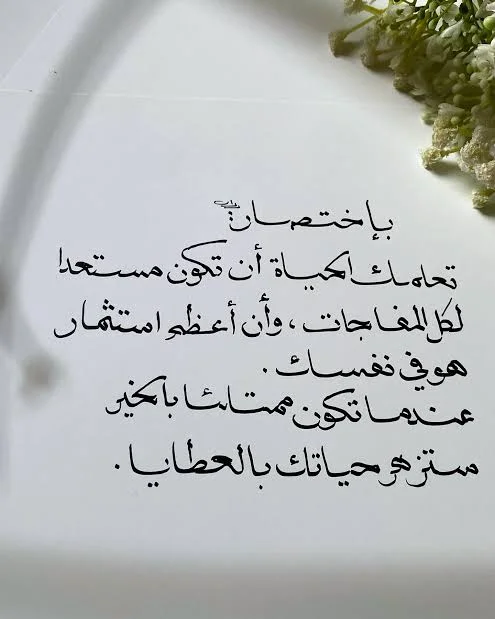 باختصار:
تعلمك الحياة أن تكون مستعدا
لكل المفاجات، وأن أعظم استثمار
هو في نفسك.
عندما تكون ممتلئا بالخير
ستزهر حياتك بالعطايا.